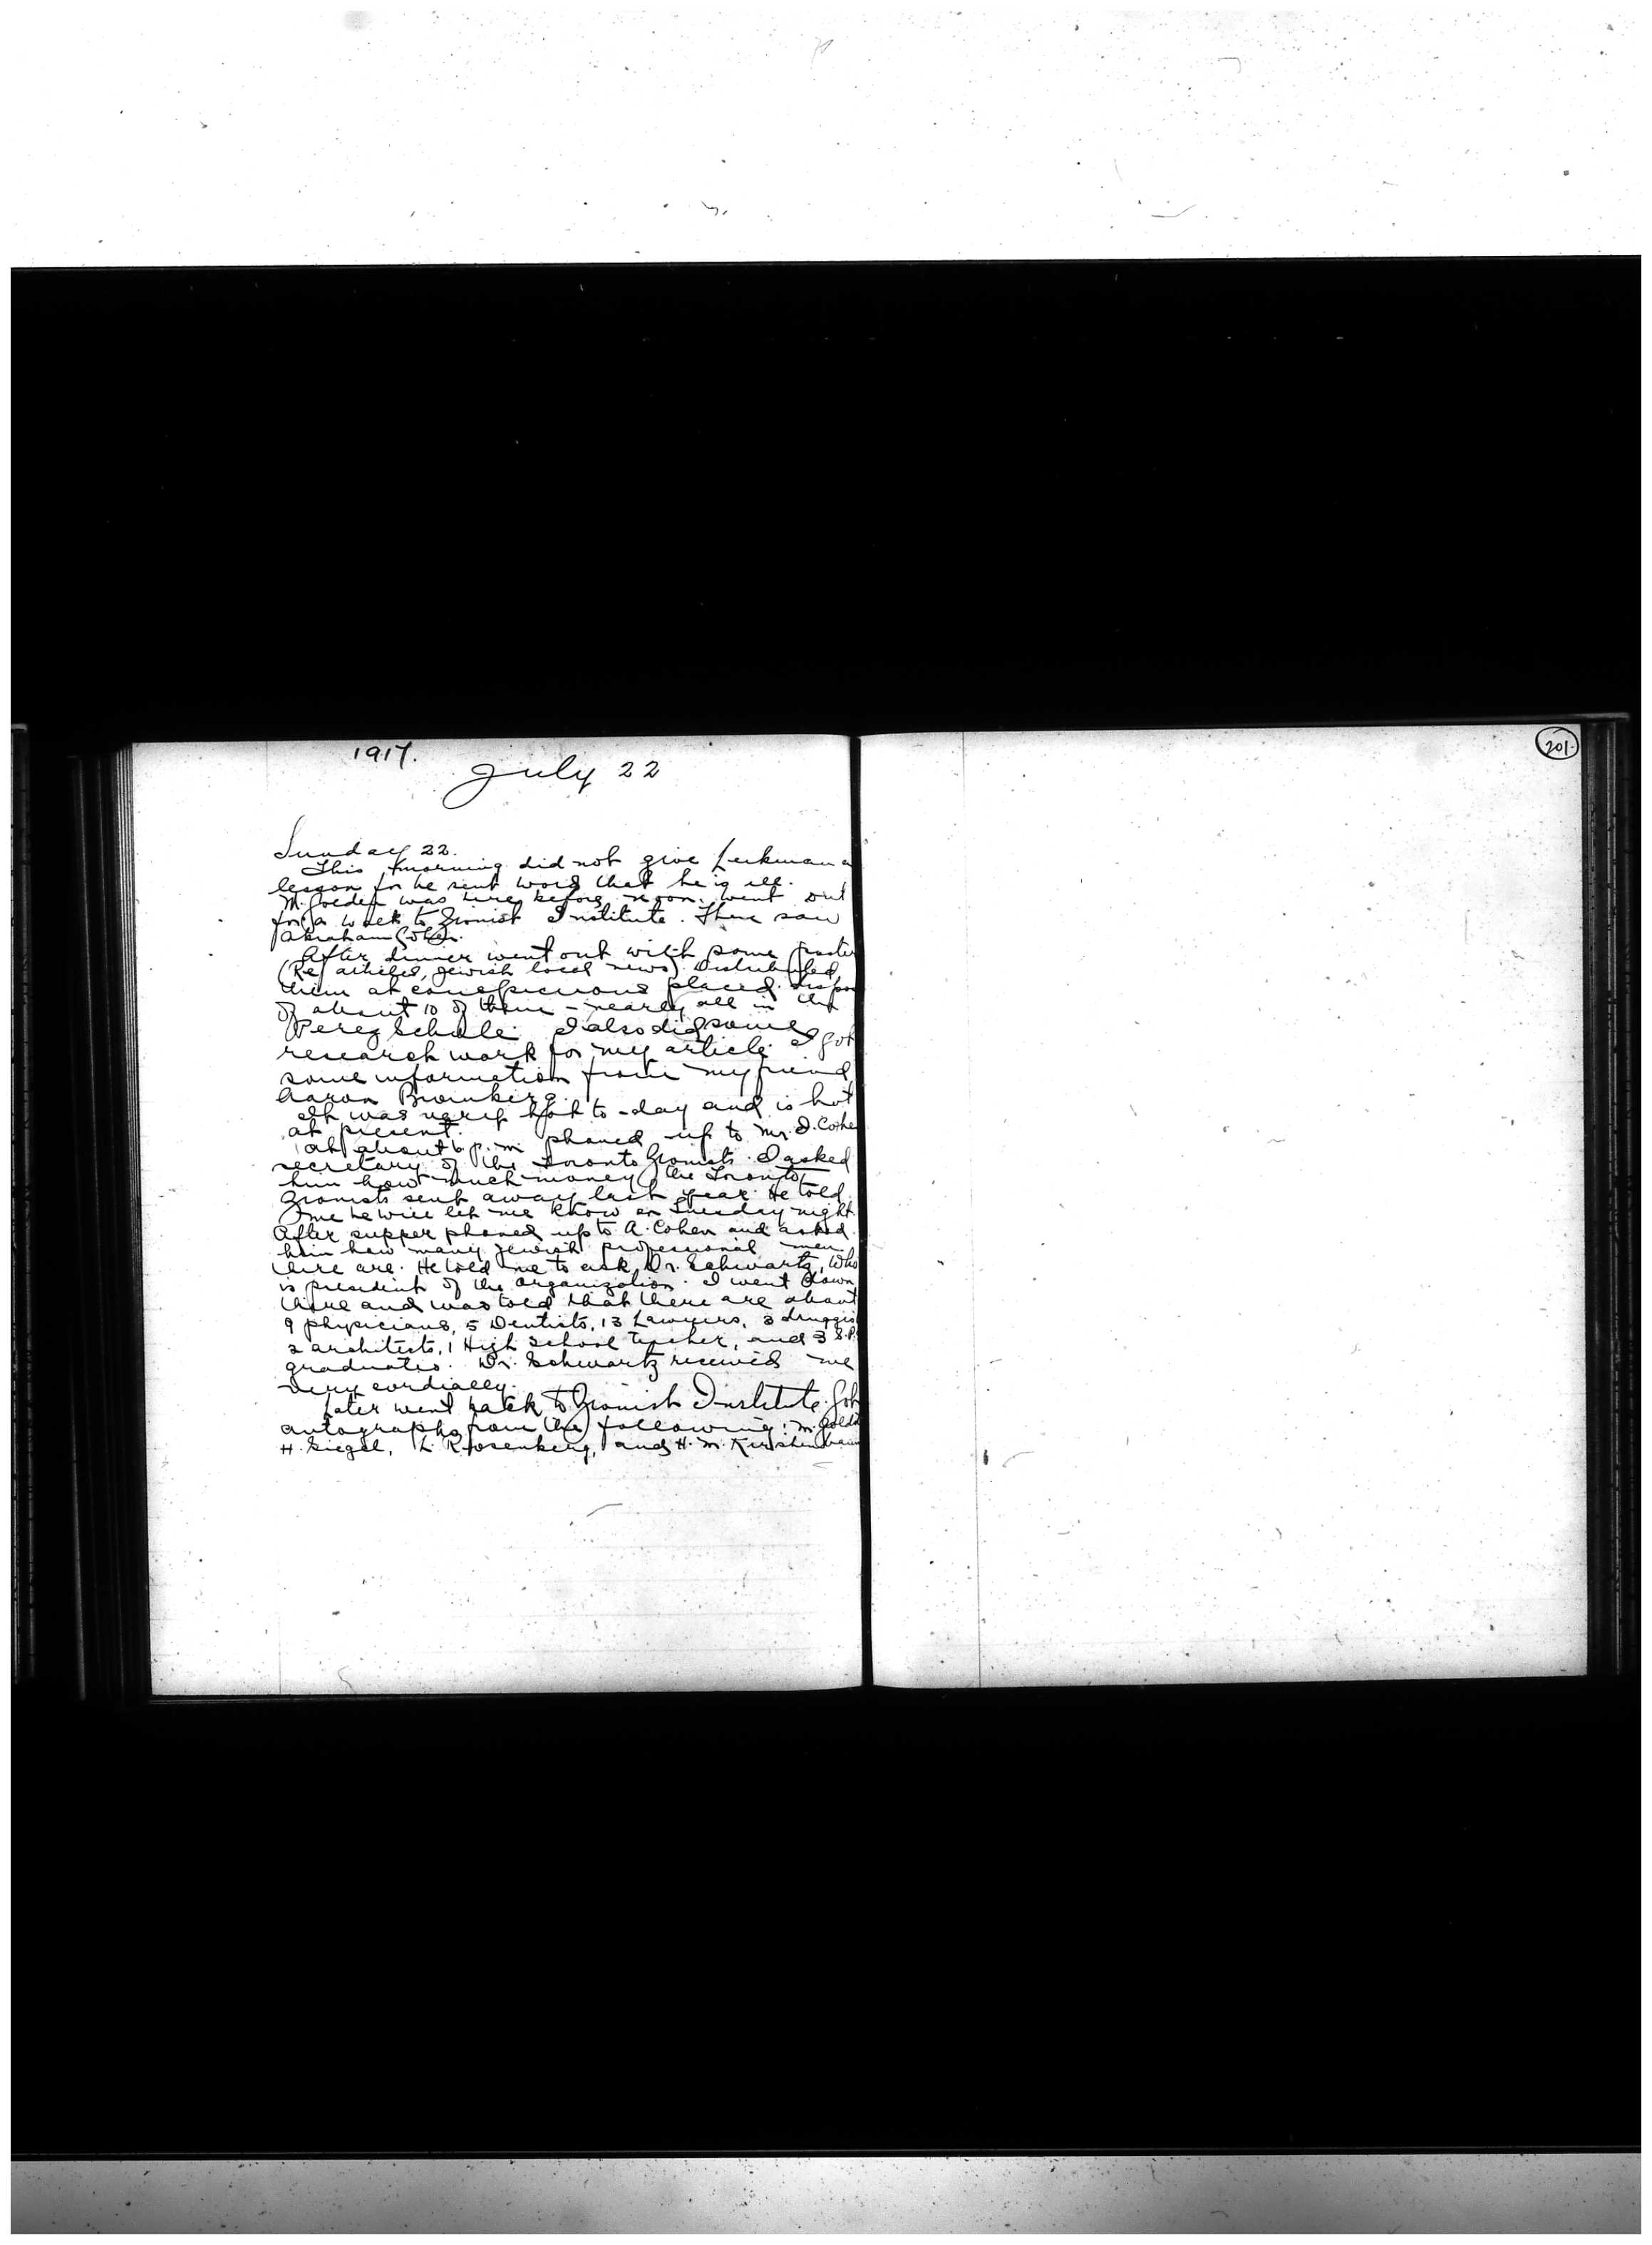 1917.
July 22
201.
Sunday 22.
This morning did not give Lerkman a
lesson for he sent word that he is ill.
M. Goeden was here before noon. Went out
for a walk to Zionist Institute. There saw
Abraham Cohen.
After dinner went out with some poster
(Re articles, Jewish local news). Distributed
them at conspicuous places. Dispos
of about 10 of them - nearly all in the
Perez Schule. I also did some
research work for my article. I got
some information from my friend,
Aaron Brownberg.
It was very hot to-day and is hot
at present.
At about 6 p.m. phoned up to Mr. D. Cohe
secretary of the Toronto Zionists. I asked
him how much money the Toronto
Zionists sent away last year. He told
me he will let me know on Tuesday night.
After supper phoned up to A. Cohen and asked
him how many Jewish professional men
there are. He told me to ask Dr. Schwartz, who
is president of the organization. I went down
there and was told that there are about
9 physicians, 5 Dentists, 13 Lawyers, 3 druggis
2 architects, 1 High School teacher, and 3 S.P.
graduates. Dr. Schwartz received me
very cordially.
Later went back to Zionist Institute. Got
autographs from the following: M. Goldn
H. Siegel, L. Rosenberg, and H. M. Kirshenbaum